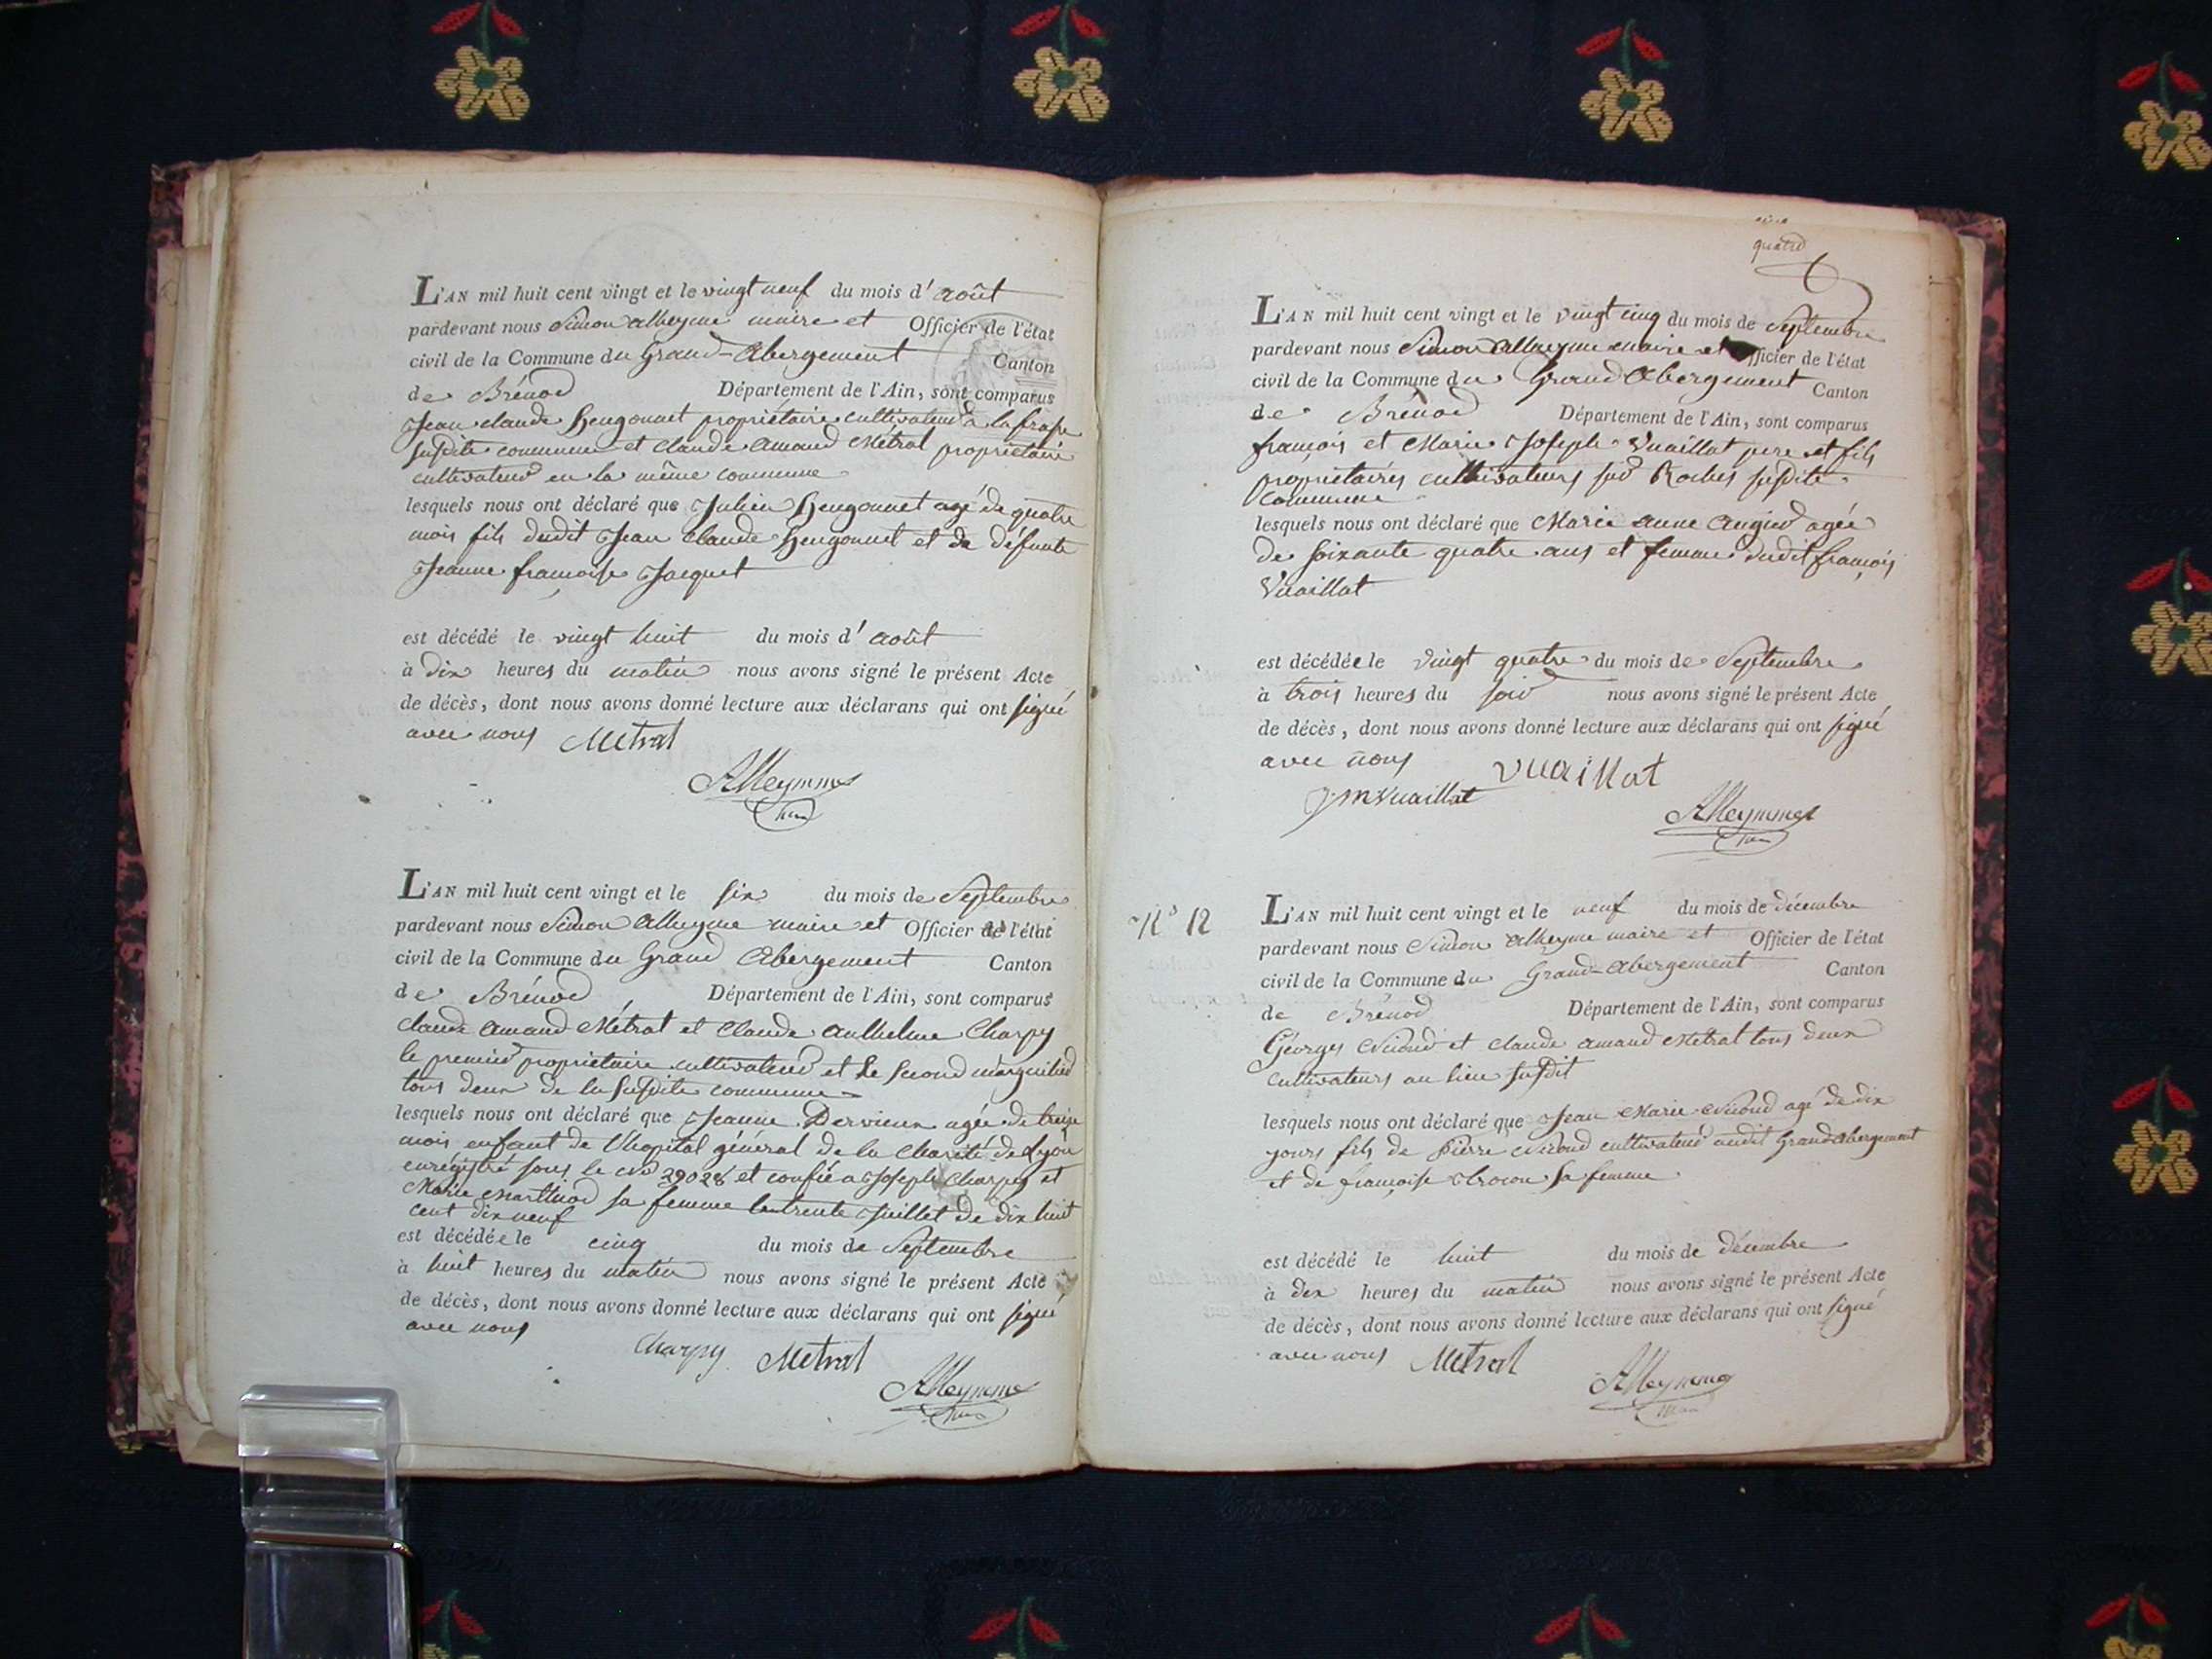 L'AN mil huit cent vingt et le vingt neuf du mois d'août
pardevant nous Simon alleyme maire et Officier de l'état
civil de la Commune du Grand-Abergement Canton
de Brénod Département de l'Ain, sont comparus
Jean claude hugonnet propriétaire cultivateur à la
susdite commune et claude amand Métral propriétaire
cultivateur en la même commune
lesquels nous ont déclaré que Julien hugonnet agé de quatre
mois fils dudit Jean claude hugonnet et de défunte
Jeanne françoise Jacquet
est décédé le vingt huit du mois d'août
à dix heures du matin nous avons signé le présent Acte
de décès, dont nous avons donné lecture aux déclarans qui ont signé
avec nous Metral
Alleymme
L'AN mil huit cent vingt et le six du mois de Septembre
pardevant nous Simon alleyme maire et Officier de l'état
civil de la Commune du Grand Abergement Canton
de Brénod Département de l'Ain, sont comparus
claude amand Métral et claude anthelme Charpy
le premier propriétaire cultivateur et le second marguilier
tous deux de la susdite commune
lesquels nous ont déclaré que Jeanne Dervieux agée de treize
mois enfant de l'hopital général de la charité de Lyon
enrégistré sous le No 29028 et confié a Joseph Charpy et
Marie Marthod sa femme le trente Juillet de dix huit
cent dix neuf
est décédée le cinq du mois de Septembre
à huit heures du matin nous avons signé le présent Acte
de décès, dont nous avons donné lecture aux déclarans qui ont signé
avec nous
Charpy Metral
Alleymme
quatre
L'AN mil huit cent vingt et le vingt cinq du mois de Septembre
pardevant nous Simon alleyme maire et Officier de l'état
civil de la Commune du Grand Abergement Canton
de Brénod Département de l'Ain, sont comparus
françois et Marie Joseph Vuaillat pere et fils
propriétaires cultivateurs sur Roches susdite
commune
lesquels nous ont déclaré que Marie anne augier agée
de soixante quatre ans et femme dudit françois
Vuaillat
est décédée le vingt quatre du mois de Septembre
à trois heures du soir nous avons signé le présent Acte
de décès, dont nous avons donné lecture aux déclarans qui ont signé
avec nous vuaillat
jmvuaillat
Alleymme
N° 12
L'AN mil huit cent vingt et le neuf du mois de décembre
pardevant nous Simon alleyme maire et Officier de l'état
civil de la Commune du Grand-Abergement Canton
de Brénod Département de l'Ain, sont comparus
Géorges Nicoud et claude amand Métral tous deux
cultivateurs au lieu susdit
lesquels nous ont déclaré que Jean Marie Nicoud agé de dix
jours fils de Pierre Nicoud cultivateur audit Grand abergement
et de françoise sa femme
est décédé le huit du mois de décembre
à dix heures du matin nous avons signé le présent Acte
de décès, dont nous avons donné lecture aux déclarans qui ont signé
avec nous Metral
Alleymme